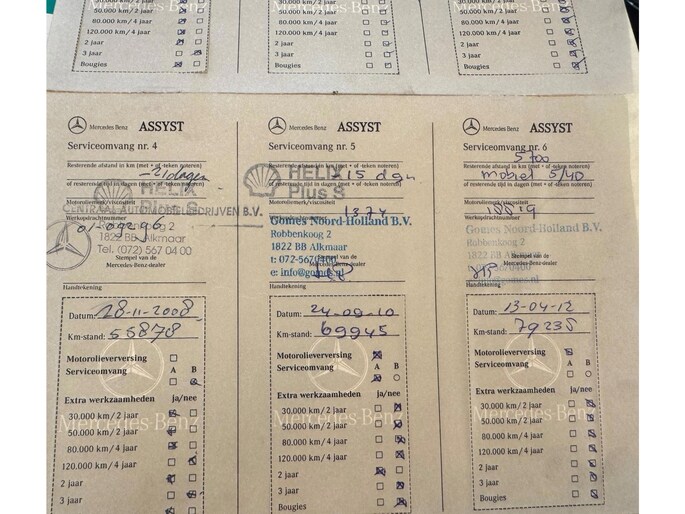 50.000 km/2 jaar
80.000 km/2 jaar
120.000 km/4 jaar
2 jaar
3 jaar
Bougies
50.000 km/2 jaar
80.000 km/2 jaar
120.000 km/4 jaar
2 jaar
3 jaar
Bougies
50.000 km/2 jaar
80.000 km/2 jaar
120.000 km/4 jaar
2 jaar
3 jaar
Bougies
Mercedes Benz ASSYST
Serviceomvang nr. 4
Resterende afstand in km (met + of -teken noteren)
-21 dagen
of resterende tijd in dagen (met + of -teken noteren)
HELIX
Plus S
Motoroliemerk/viscositeit
CENTRAAL AUTOMOBIELBEDRIJVEN B.V.
Werkopdrachtnummer
Robbenkoog 2
1822 BB Alkmaar
Tel. (072) 567 04 00
Stempel van de
Mercedes-Benz-dealer
Handtekening
Datum: 28-11-2008
Km-stand: 55878
Motorolieverversing
Serviceomvang A B
Extra werkzaamheden ja/nee
30.000 km/2 jaar
50.000 km/2 jaar
80.000 km/2 jaar
120.000 km/4 jaar
2 jaar
3 jaar
Mercedes Benz ASSYST
Serviceomvang nr. 5
Resterende afstand in km (met + of -teken noteren)
HELIX
Plus S
15 dgn
of resterende tijd in dagen (met + of -teken noteren)
Motoroliemerk/viscositeit
Gomes Noord-Holland B.V.
Robbenkoog 2
1822 BB Alkmaar
t: 072-5670400
Stempel van de
Mercedes-Benz-dealer
Handtekening
Datum: 24-09-10
Km-stand: 69945
Motorolieverversing
Serviceomvang A B
Extra werkzaamheden ja/nee
30.000 km/2 jaar
50.000 km/2 jaar
80.000 km/2 jaar
120.000 km/4 jaar
2 jaar
3 jaar
Bougies
Mercedes Benz ASSYST
Serviceomvang nr. 6
5700
Resterende afstand in km (met + of -teken noteren)
mobiel 5/40
of resterende tijd in dagen (met + of -teken noteren)
Motoroliemerk/viscositeit
Werkopdrachtnummer
Gomes Noord-Holland B.V.
Robbenkoog 2
1822 BB Alkmaar
Stempel van de
Mercedes-Benz-dealer
Handtekening
Datum: 13-04-12
Km-stand: 79235
Motorolieverversing
Serviceomvang A B
Extra werkzaamheden ja/nee
30.000 km/2 jaar
50.000 km/2 jaar
80.000 km/2 jaar
120.000 km/4 jaar
2 jaar
3 jaar
Bougies